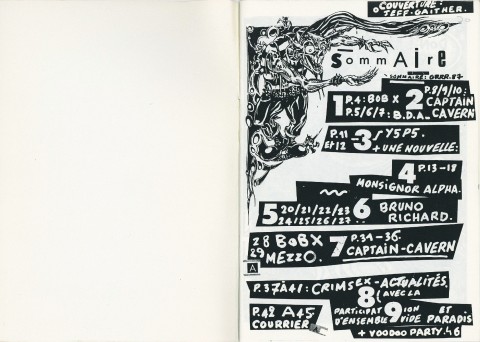 COUVERTURE:
JEFF-GAITHER.
SommAire
SOMMAIRE: GRRR.87
1 P.4: BOB X 2 P.8/9/10:
P.5/6/7: B.D.A_ CAPTAIN CAVERN
P.11 ET 12 3 SY5P5.
+ UNE NOUVELLE:
4 P.13-18
MONSIGNOR ALPHA.
5 20/21/22/23 6 BRUNO
24/25/26/27.. RICHARD.
28 BOBX 7 P.31-36.
29 MEZZO. CAPTAIN-CAVERN
P.37À41: CRIMSEX-ACTUALITÉS
8 (AVEC LA
P.42 A 45 PARTICIPATION 9 ET
COURRIER D'ENSEMBLE VIDE PARADIS
+ VOODOO PARTY.46